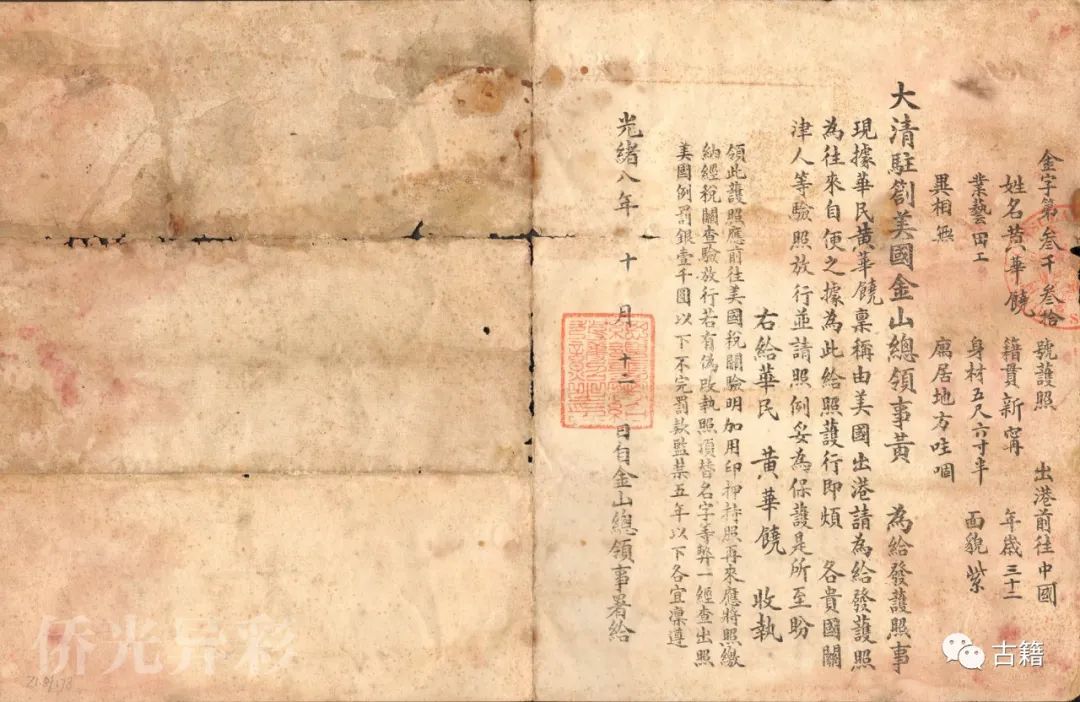 金字第叁千叁拾 號護照 出港前往中國
姓名黄華饒 籍貫新寗 年歲三十二
業藝田工 身材五尺六寸半 面貌紫
異相無 寓居地方哇𠺘
大清駐劄美國金山總領事黃 為給發護照事
現據華民黃華饒稟稱由美國出港請為給發護照
為往來自便之據為此給照護行即煩 各貴國關
津人等驗照放行並請照例妥為保護是所至盼
右給華民 黃華饒 收執
領此護照應前往美國稅關驗明加用印押持照再來應將照繳
納經稅關查驗放行若有偽改執照頂替名字等弊一經查出照
美國例罰銀壹千圓以下不完罰款監禁五年以下各宜凛遵
光緒八年 十 月 十二 日自金山總領事署給
侨光异彩
古籍